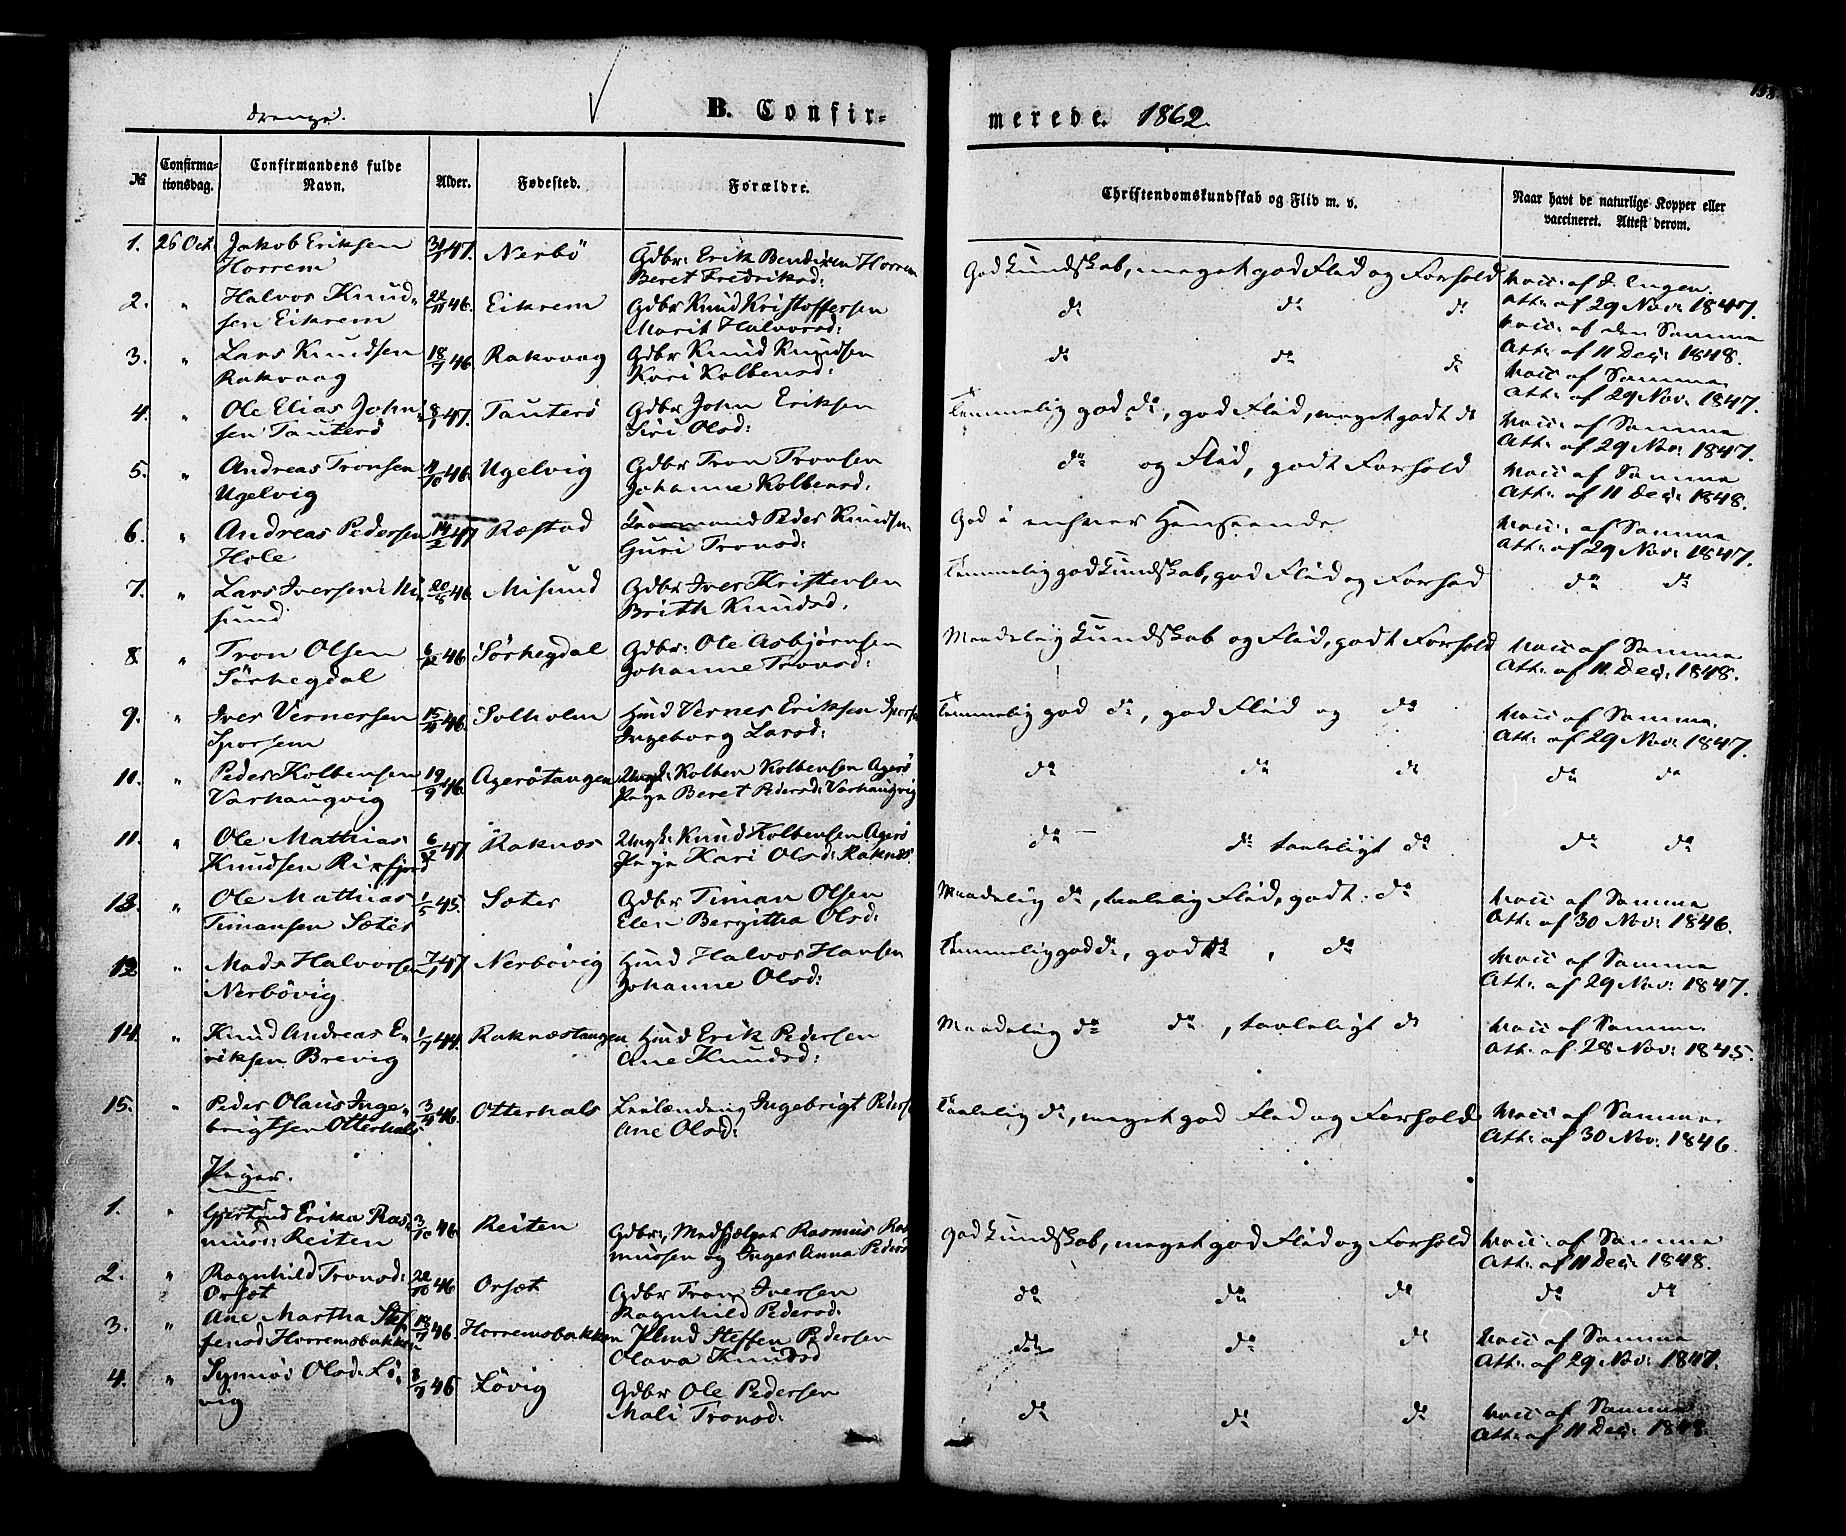 158
Drenge.
B. Confir-
merede. 1862.
№
Confirma-
tionsdag.
Confirmandens fulde
Navn.
Alder.
Fødested.
Forældre.
Christendomskundskab og Flid m. v.
Naar havt de naturlige Kopper eller
vaccineret. Attest derom.
1. 26 Oct. Jakob Eriksen 47. Nerbö Gdbr: Erik Bendixen Horrem God Kundskab, meget god Flid og Forhold Vacc: af J. Engen.
Horrem Beret Fredriksd: Att: af 29 Nov: 1847.
2. " Halvor Knud- 22/11 46. Eikrem Gdbr Knud Kristoffersen do do do Vacc: af den Samme
sen Eikrem Marit Halvorsd: Att: af 11 Dec: 1848.
3. " Lars Knudsen 18/7 46 Rakvaag Gdbr Knud Knudsen do do do Vacc: af Samme
Rakvaag Kari Kolbensd: Att: af 29 Nov: 1847.
4. " Ole Elias John- 47. Tauterö Gdbr John Eriksen Temmelig god do, god Flid, meget godt do Vacc: af Samme
sen Tauterö Siri Olsd: Att: af 29 Nov: 1847.
5. " Andreas Tronsen 11/10 46. Ugelvig Gdbr Tron Tronsen do og Flid, godt Forhold Vacc: af Samme
Ugelvig Johanne Kolbensd: Att: af 11 Dec: 1848.
6. " Andreas Pedersen 14/2 47 Ræstad Peder Knudsen God i enhver Henseende Vacc: af Samme
Hole Guri Tronsd: Att: af 29 Nov: 1847.
7. " Lars Iversen Mi- 20/8 46. Misund Gdbr Iver Kristensen Temmelig god Kundskab, god Flid og Forhod do do
sund Brith Knudsd.
8 " Tron Olsen 6/12 46 Sörhegdal Gdbr: Ole Asbjørnsen Maadelig Kundskab og Flid, godt Forhold Vacc: af Samme
Sörhegdal Johanne Tronsd: Att: af 11 Dec: 1848.
9. " Iver Vernersen 46. Solholm Hmd Verner Eriksen Temmelig god do, god Flid og do Vacc: af Samme.
Sporsem Ingeborg Larsd: Att: af 29 Nov: 1847.
10. " Peder Kolbensen 19/9 46. Agerötangen Ungk: Kolben Kolbensen Agerö do do do do do
Varhaugvig Pige Beret Pedersd: Varhaugvig
11. " Ole Mathias 47 Raknæs Ungk: Knud Kolbensen Agerö do do taaleligt do do do
Knudsen Pige Kari Olsd: Raknæs
13. " Ole Mathias 1/5 45. Sæter Gdbr Timan Olsen Maadelig do, taalelig Flid, godt do Vacc: af Samme
Timansen Sæter Elen Bergitha Olsd: Att: af 30 Nov: 1846.
12 " Mads Halvorsen 7/1 47 Nerbövig Hmd Halvor Hansen Temmelig god do, god do, do Vacc: af Samme
Nerbövig Johanne Olsd: Att: af 29 Nov: 1847.
14. " Knud Andreas E- 1/7 44. Raknæstangen Hmd Erik Pedersen Maadelig do do, taaleligt do Vacc: af Samme
riksen Brevig Ane Knudsd: Att: af 28 Nov: 1845.
15. " Peder Olaus Inge- 46. Otterhals Leilænding Ingebrigt Peders Taalelig do, meget god Flid og Forhold Vacc: af Samme.
brigtsen Otterhals Ane Olsd: Att: af 30 Nov: 1846.
Piger.
1. " Gjertrud Erika Ras- 3/10 46 Reiten Gdbr: Medhjelper Rasmus Ras God Kundskab, meget god Flid og Forhold Vacc: af Samme
musd: Reiten mussen og Inger Anna Peders Att: af 11 Dec: 1848.
2. " Ragnhild Tronsd: 22/10 46 Orsæt Gdbr Tron Iversen do do do do do
Orsæt Ragnhild Pedersd:
3. " Ane Martha Stef- 46 Horremsbakken Plmd Steffen Pedersen do do do Vacc: af Samme
fensd Horremsbakken Olava Knudsd Att: af 29 Nov: 1847.
4. " Synnös Olsd: Lö- 46 Lövig Gdbr Ole Pedersen do do do Vacc: af Samme
vig Mali Tronsd: Att: af 11 Dec: 1848.